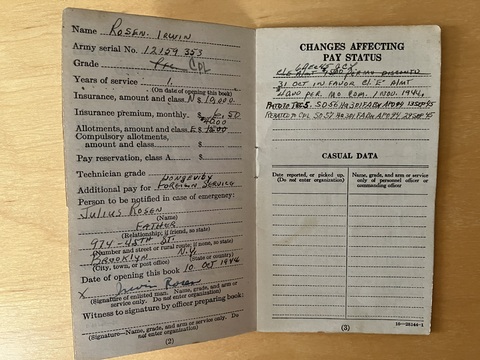 Name Rosen, Irwin
Army serial No. 12159353
Grade Pvt Cpl
Years of service 1
(On date of opening this book)
Insurance, amount and class N $ 10,000.
Insurance premium, monthly. $ 6.50
Allotments, amount and class E $
Compulsory allotments,
amount and class $
Pay reservation, class A $
Technician grade
Longevity
Additional pay for Foreign Service
Person to be notified in case of emergency:
Julius Rosen
(Name)
Father
(Relationship; if friend, so state)
974-45TH ST.
(Number and street or rural route; if none, so state)
Brooklyn N.Y.
(City, town, or post office) (State or country)
Date of opening this book 10 Oct 1944
X Irwin Rosen
(Signature of enlisted man. Name, grade, and arm or
service only. Do not enter organization)
Witness to signature by officer preparing book:
(Signature—Name, grade, and arm or service only. Do
not enter organization)
(2)
CHANGES AFFECTING
PAY STATUS
31 Oct in favor Cl "E" Almt
per mo com. 1 Nov. 1944
CASUAL DATA
Date reported, or picked up.
(Do not enter organization)
Name, grade, and arm or service
only of personnel officer or
commanding officer
(3)
16—26144-1